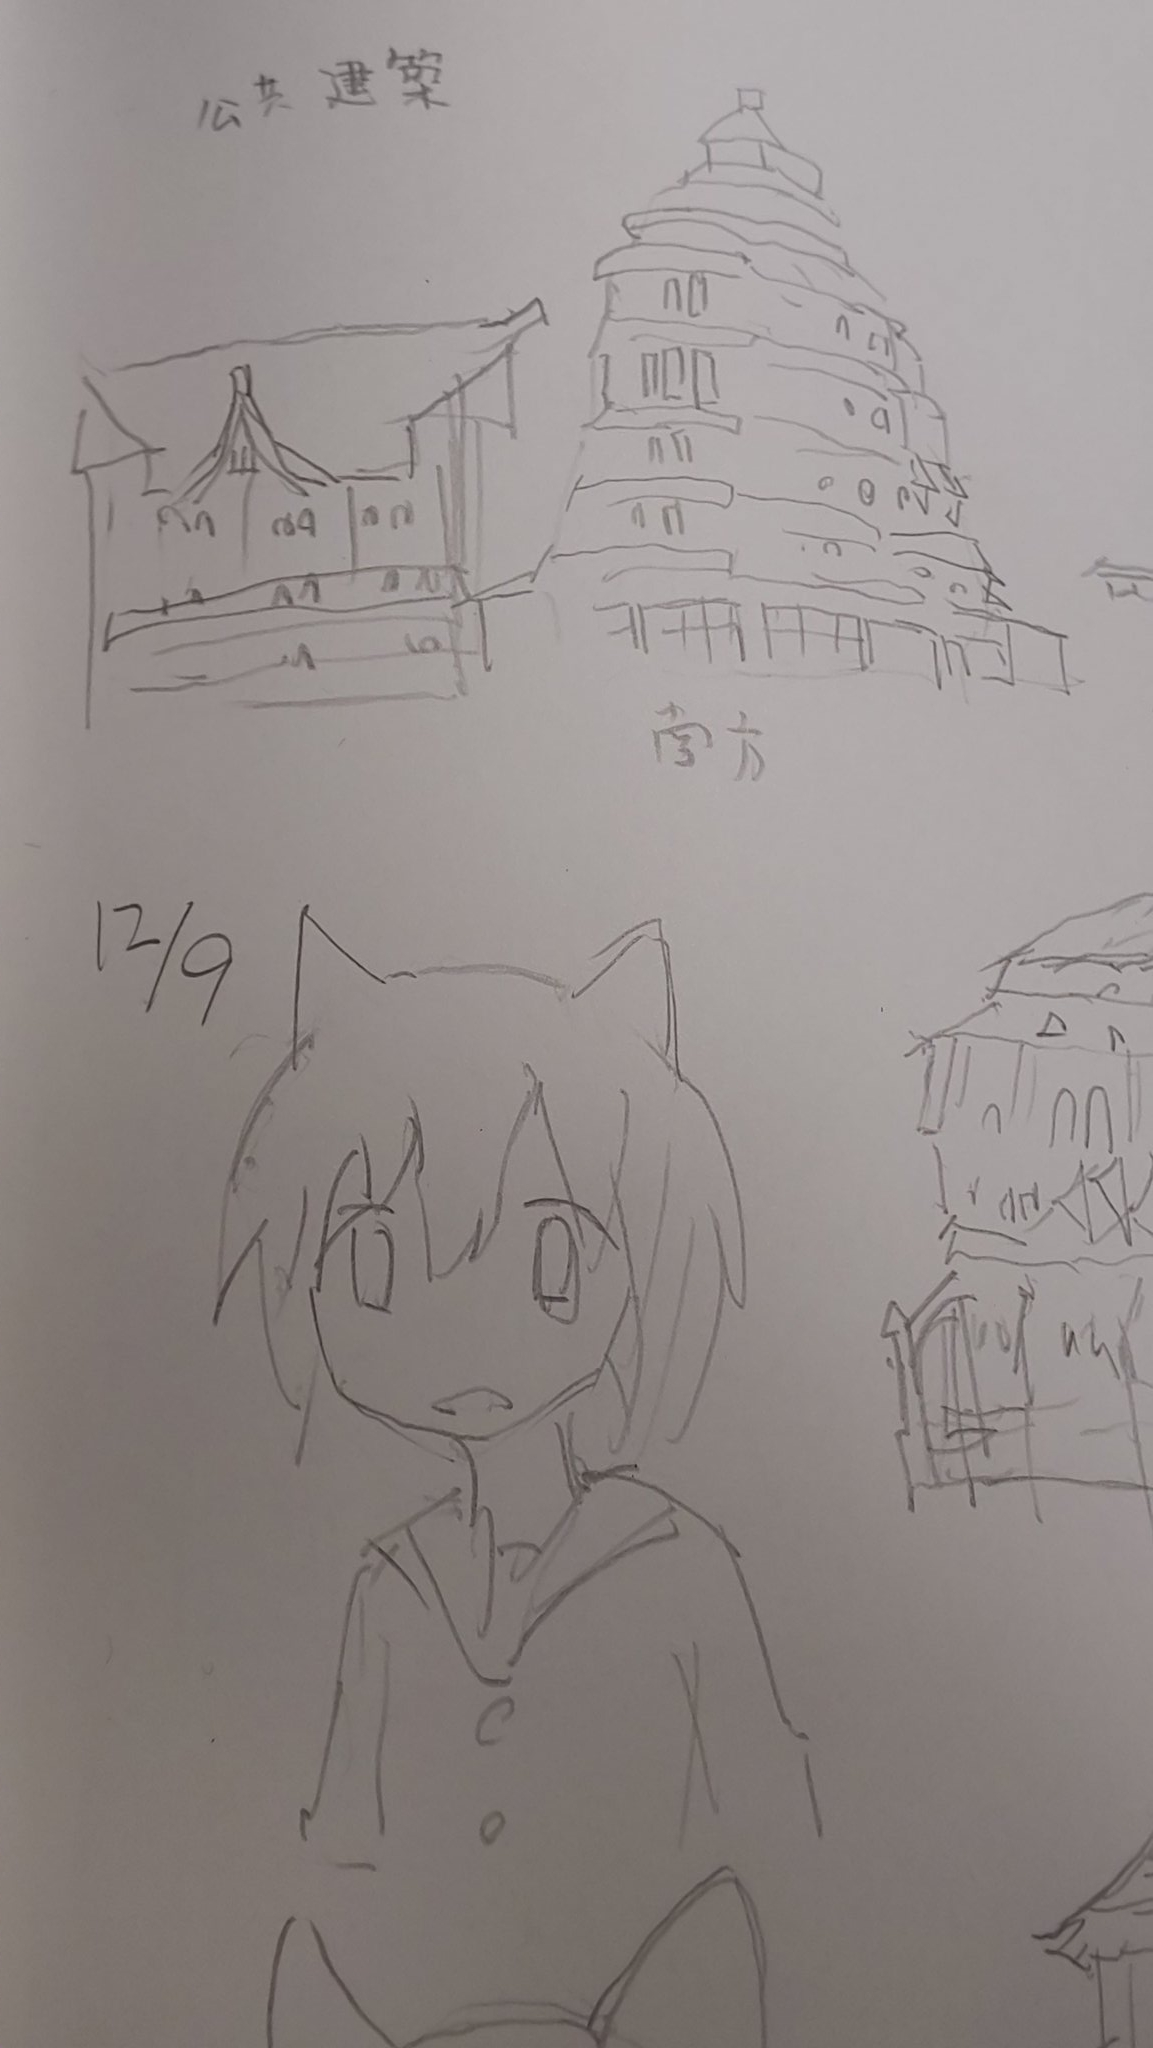 公共建築
南方
12/9